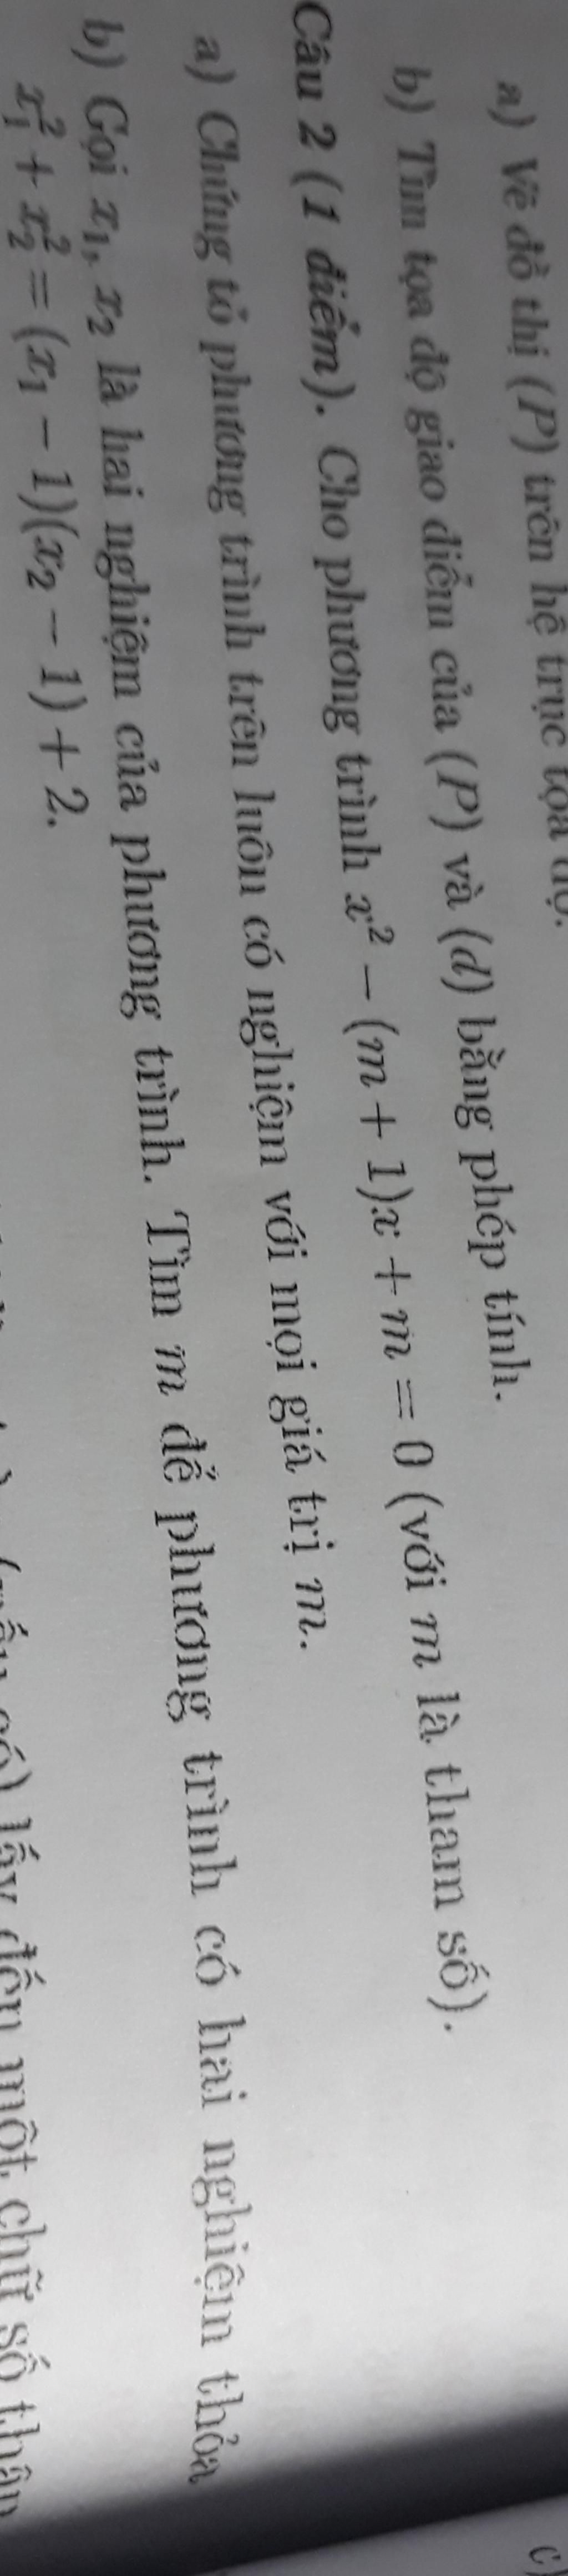 a) Vẽ đồ thị (P) trên hệ trục tọa độ.
b) Tìm tọa độ giao điểm của (P) và (d) bằng phép tính.
Câu 2 (1 điểm). Cho phương trình x² − (m + 1)x + m = 0 (với m là tham số).
a) Chứng tỏ phương trình trên luôn có nghiệm với mọi giá trị m.
b) Gọi x₁, x₂ là hai nghiệm của phương trình. Tìm m để phương trình có hai nghiệm thỏa
x₁² + x₂² = (x₁ − 1)(x₂ − 1) + 2.
lấy đến một chữ số thận
c)